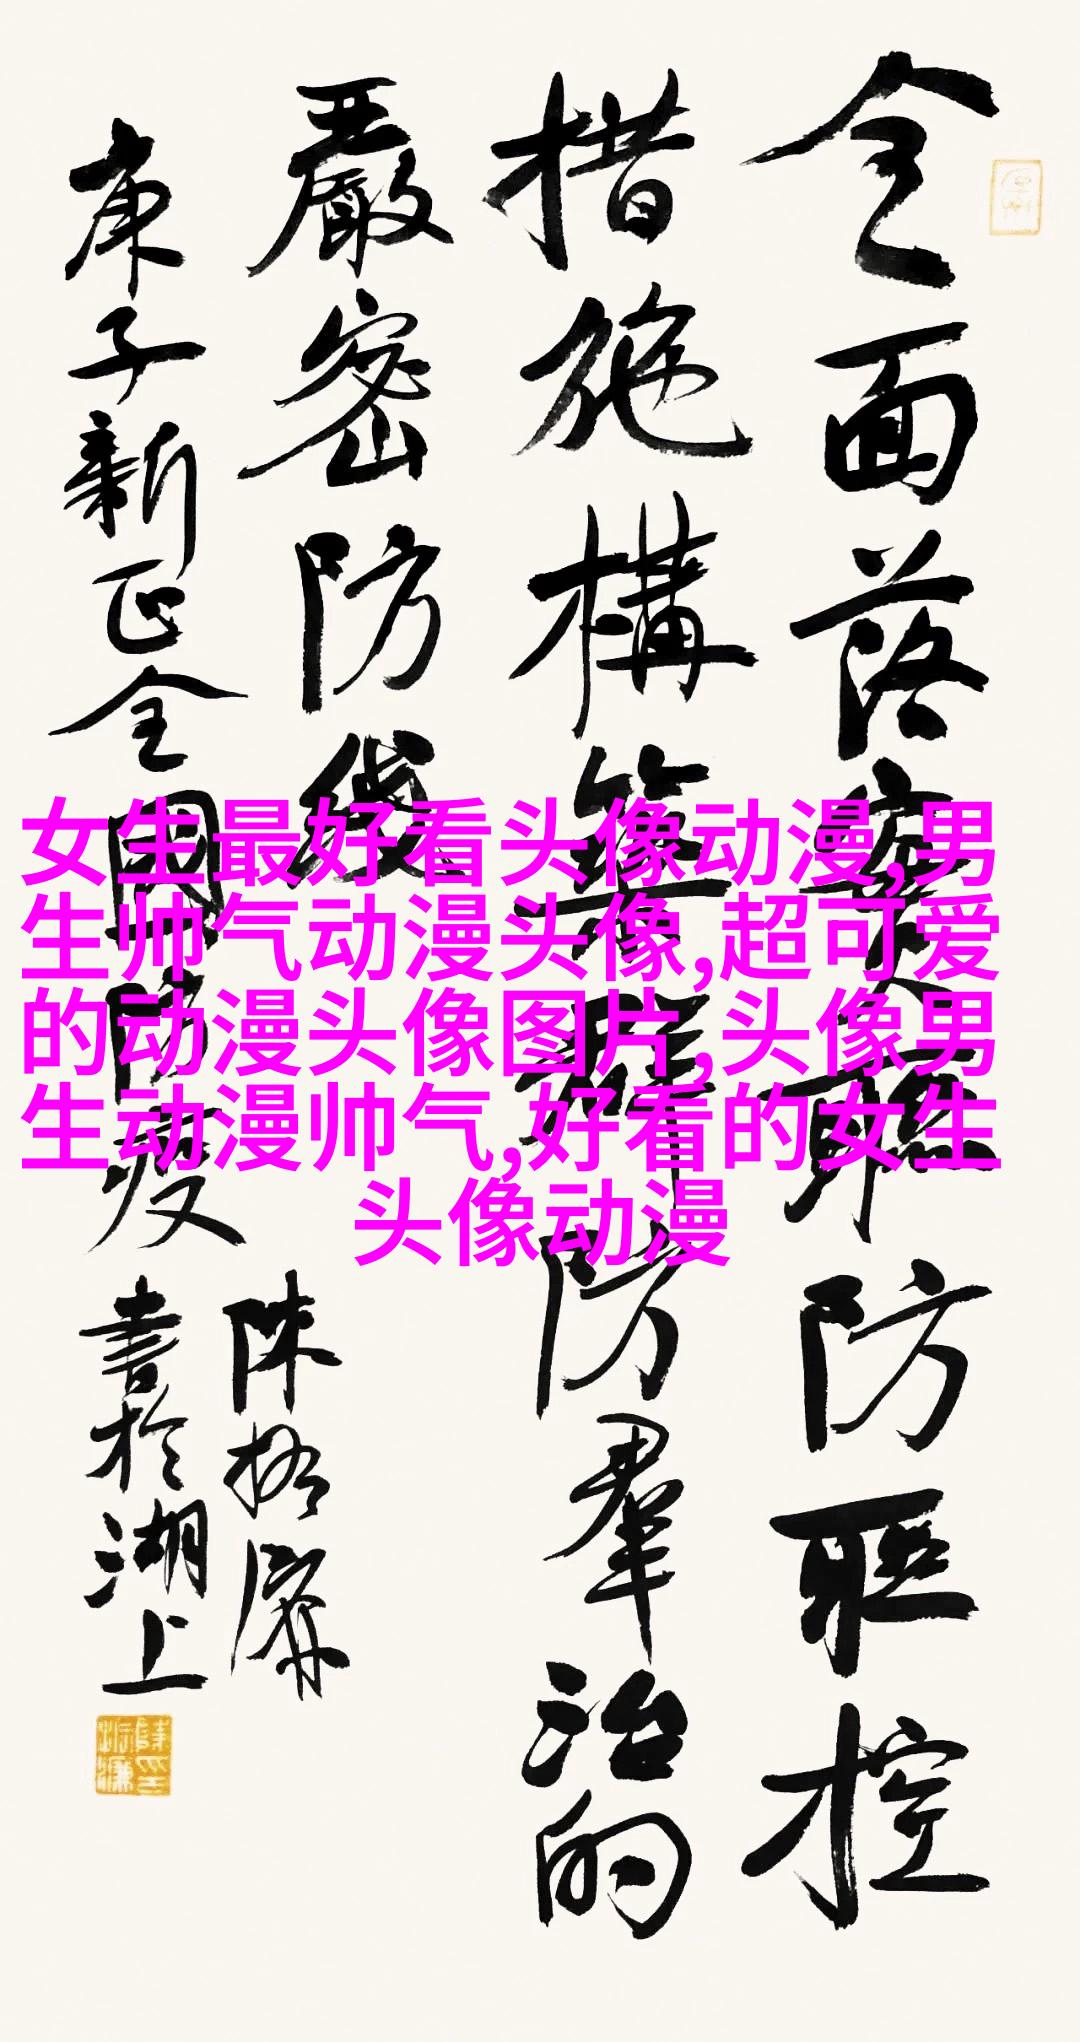 全面落实联防联控
措施構築羣防羣治的
嚴密防线
庚子新正全国防疫
陈振濂
書於湖上
女生最好看头像动漫,男
生帅气动漫头像,超可爱
的动漫头像图片,头像男
生动漫帅气,好看的女生
头像动漫